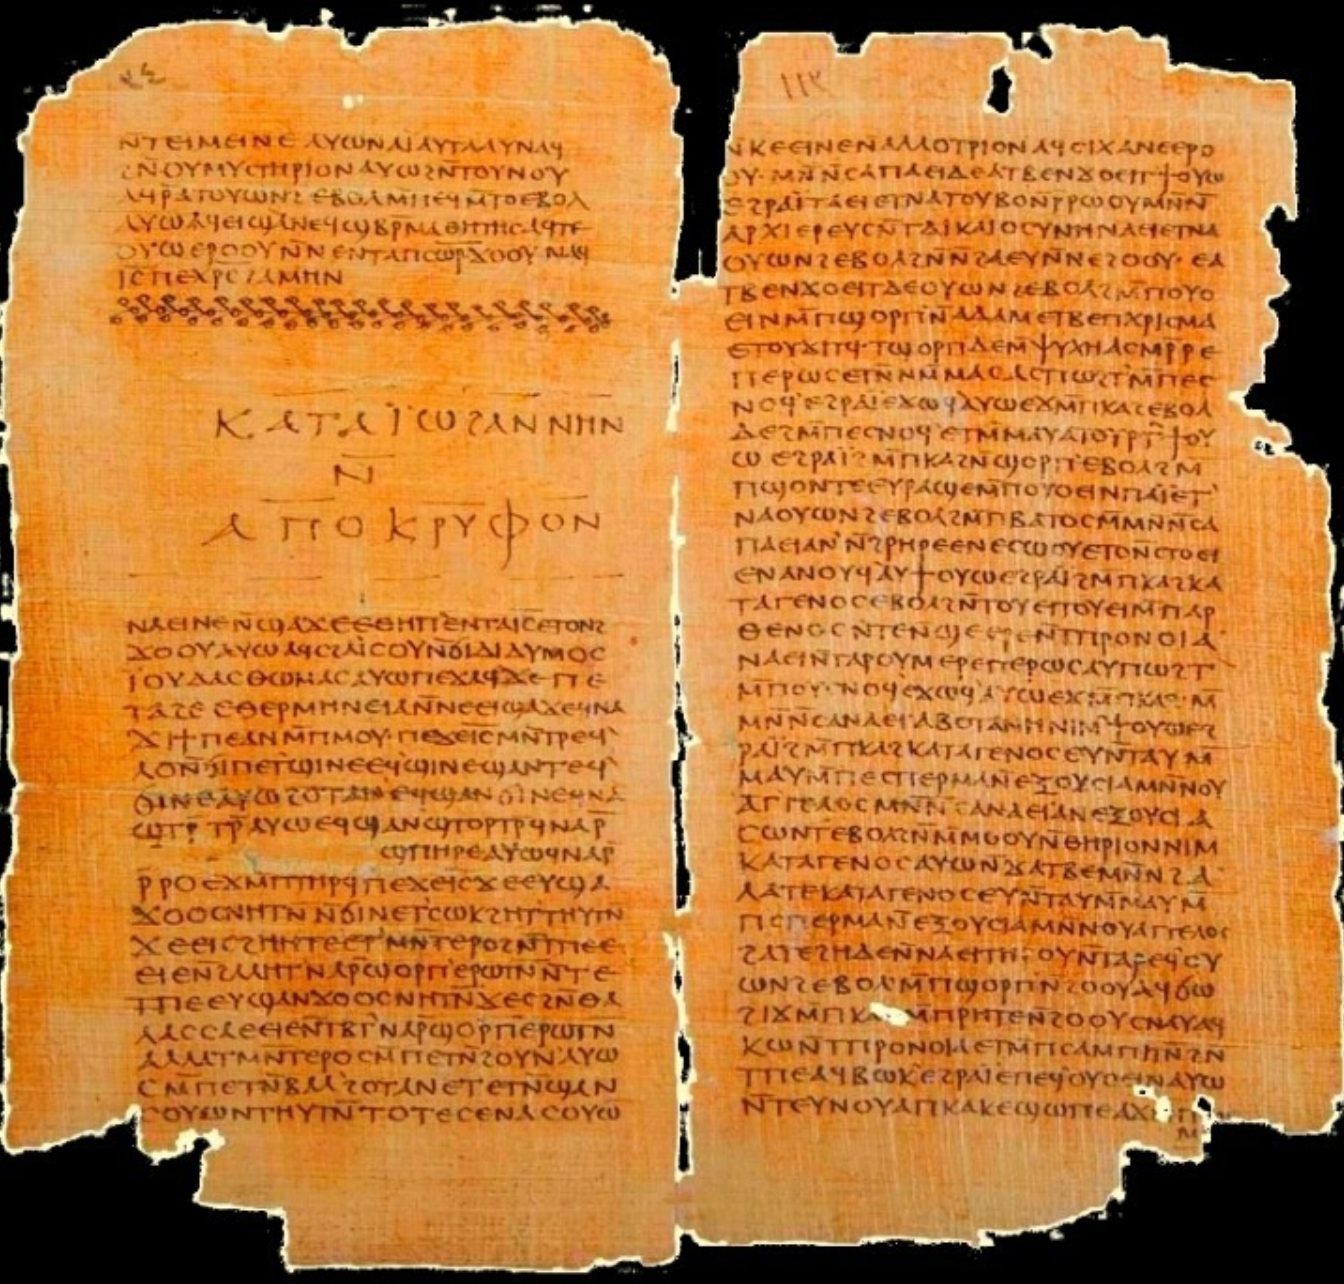 ⲛ̄ⲧⲉⲓⲙⲉⲓⲛⲉ ⲁⲩⲱ ⲛⲁⲓ̈ ⲁⲩⲧⲁⲁⲩ ⲛⲁϥ
ϩⲛ̄ ⲟⲩⲙⲩⲥⲧⲏⲣⲓⲟⲛ ⲁⲩⲱ ϩⲛ̄ ⲧⲟⲩⲛⲟⲩ
ⲁϥⲣ̄ ⲁⲧⲟⲩⲱⲛϩ ⲉⲃⲟⲗ ⲙ̄ⲡⲉϥⲙ̄ⲧⲟ ⲉⲃⲟⲗ
ⲁⲩⲱ ⲁϥⲉⲓ ϣⲁ ⲛⲉϥϣⲃⲣ̄ⲙⲁⲑⲏⲧⲏⲥ ⲁϥⲧⲉ
ⲟⲩⲱ ⲉⲣⲟⲟⲩ ⲛ̄ⲛⲉⲛⲧⲁⲡⲥⲱⲣ̄ ϫⲟⲟⲩ ⲛⲁϥ
ⲓ̅ⲥ̅ ⲡⲉⲭ̅ⲣ̅ⲥ̅ ϩⲁⲙⲏⲛ
ⲕⲁⲧⲁ ⲓ̈ⲱϩⲁⲛⲛⲏⲛ
ⲛ̄
ⲁⲡⲟⲕⲣⲩⲫⲟⲛ
ⲛⲁⲉⲓ ⲛⲉ ⲛ̄ϣⲁϫⲉ ⲉⲑⲏⲡ ⲉⲛⲧⲁⲓ̅ⲥ̅ ⲉⲧⲟⲛϩ
ϫⲟⲟⲩ ⲁⲩⲱ ⲁϥⲥϩⲁⲓ̈ⲥⲟⲩ ⲛ̄ϭⲓ ⲇⲓⲇⲩⲙⲟⲥ
ⲓ̈ⲟⲩⲇⲁⲥ ⲑⲱⲙⲁⲥ ⲁⲩⲱ ⲡⲉϫⲁϥ ϫⲉ ⲡⲉ
ⲧⲁϩⲉ ⲉⲑⲉⲣⲙⲏⲛⲉⲓⲁ ⲛ̄ⲛⲉⲉⲓϣⲁϫⲉ ϥⲛⲁ
ϫⲓ ϯⲡⲉ ⲁⲛ ⲙ̄ⲡⲙⲟⲩ ⲡⲉϫⲉ ⲓ̅ⲥ̅ ⲙⲛ̄ⲧⲣⲉϥ
ⲗⲟ ⲛ̄ϭⲓ ⲡⲉⲧϣⲓⲛⲉ ⲉϥϣⲓⲛⲉ ϣⲁⲛⲧⲉϥ
ϭⲓⲛⲉ ⲁⲩⲱ ϩⲟⲧⲁⲛ ⲉϥϣⲁⲛϭⲓⲛⲉ ϥⲛⲁ
ϣⲧⲣ̄ⲧⲣ̄ ⲁⲩⲱ ⲉϥϣⲁⲛϣⲧⲟⲣⲧⲣ ϥⲛⲁⲣ̄
ϣⲡⲏⲣⲉ ⲁⲩⲱ ϥⲛⲁⲣ̄
ⲣ̄ⲣⲟ ⲉϫⲙ̄ ⲡⲧⲏⲣϥ ⲡⲉϫⲉ ⲓ̅ⲥ̅ ϫⲉ ⲉⲩϣⲁ
ϫⲟⲟⲥ ⲛⲏⲧⲛ̄ ⲛ̄ϭⲓ ⲛⲉⲧⲥⲱⲕ ϩⲏⲧ ⲧⲏⲩⲧⲛ̄
ϫⲉ ⲉⲓⲥϩⲏⲏⲧⲉ ⲉⲧⲙⲛ̄ⲧⲉⲣⲟ ϩⲛ̄ ⲧⲡⲉ ⲉ
ⲉⲓⲉ ⲛ̄ϩⲁⲗⲏⲧ ⲛⲁⲣ̄ ϣⲟⲣⲡ ⲉⲣⲱⲧⲛ̄ ⲛ̄ⲧⲉ
ⲧⲡⲉ ⲉⲩϣⲁⲛϫⲟⲟⲥ ⲛⲏⲧⲛ̄ ϫⲉ ⲥϩⲛ̄ ⲑⲁ
ⲗⲁⲥⲥⲁ ⲉⲉⲓⲉ ⲛ̄ⲧⲃⲧ ⲛⲁⲣ̄ ϣⲟⲣⲡ ⲉⲣⲱⲧⲛ̄
ⲁⲗⲗⲁ ⲧⲙⲛ̄ⲧⲉⲣⲟ ⲥⲙ̄ⲡⲉⲧⲛ̄ϩⲟⲩⲛ ⲁⲩⲱ
ⲥⲙ̄ⲡⲉⲧⲛ̄ⲃⲁⲗ ϩⲟⲧⲁⲛ ⲉⲧⲉⲧⲛ̄ϣⲁⲛ
ⲥⲟⲩⲱⲛ ⲧⲏⲩⲧⲛ̄ ⲧⲟⲧⲉ ⲥⲉⲛⲁⲥⲟⲩⲱ
ⲛ̄ⲕⲉⲉⲓⲛⲉ ⲛⲁⲗⲗⲟⲧⲣⲓⲟⲛ ⲁϥⲥⲓⲭⲁⲛⲉ ⲉⲣⲟ
ⲟⲩ ⲙⲛ̄ⲛ̄ⲥⲁ ⲡⲁⲉⲓ ⲇⲉ ⲁⲧⲃⲉⲛϫⲟⲉⲓⲧ ϯ ⲟⲩⲱ
ⲉϩⲣⲁⲓ̈ ⲧⲁⲉⲓ ⲉⲧⲛⲁⲧⲟⲩⲃⲟ ⲛ̄ⲣ̄ⲣⲱⲟⲩ ⲙⲛ̄ ⲛ̄
ⲁⲣⲭⲓⲉⲣⲉⲩⲥ ⲛ̄ⲧⲇⲓⲕⲁⲓⲟⲥⲩⲛⲏ ⲛⲁⲉⲓ ⲉⲧⲛⲁ
ⲟⲩⲱⲛϩ ⲉⲃⲟⲗ ϩⲛ̄ ⲛ̄ϩⲁⲉⲩ ⲛ̄ⲛⲉϩⲟⲟⲩ ⲉⲁ
ⲧⲃⲉⲛϫⲟⲉⲓⲧ ⲇⲉ ⲟⲩⲱⲛϩ ⲉⲃⲟⲗ ϩⲙ̄ ⲡⲟⲩⲟ
ⲉⲓⲛ ⲙ̄ⲡϣⲟⲣⲡ ⲛ̄ⲁⲇⲁⲙ ⲉⲧⲃⲉ ⲡⲭⲣⲓⲥⲙⲁ
ⲉⲧⲟⲩϫⲓⲧϥ ⲧϣⲟⲣⲡ ⲇⲉ ⲙ̄ⲯⲩⲭⲏ ⲁⲥⲙⲣ̄ⲣⲉ
ⲡⲉⲣⲱⲥ ⲉⲧⲛ̄ⲙⲙⲁⲥ ⲁⲥⲡⲱϩⲧ ⲙ̄ⲡⲉⲥ
ⲛⲟϥ ⲉϩⲣⲁⲓ̈ ⲉϫⲱϥ ⲁⲩⲱ ⲉϫⲙ̄ ⲡⲕⲁϩ ⲉⲃⲟⲗ
ⲇⲉ ϩⲙ̄ ⲡⲉⲥⲛⲟϥ ⲉⲧⲙ̄ⲙⲁⲩ ⲁⲡⲟⲩⲣⲧ ϯ ⲟⲩ
ⲱ ⲉϩⲣⲁⲓ̈ ϩⲙ̄ ⲡⲕⲁϩ ⲛ̄ϣⲟⲣⲡ ⲉⲃⲟⲗ ϩⲙ̄
ⲡϣⲟⲛⲧⲉ ⲉⲩⲣⲁϣⲉ ⲙ̄ⲡⲟⲩⲟⲉⲓⲛ ⲡⲁⲓ̈ ⲉⲧ
ⲛⲁⲟⲩⲱⲛϩ ⲉⲃⲟⲗ ϩⲙ̄ ⲡⲃⲁⲧⲟⲥ ⲙⲛ̄ⲛ̄ⲥⲁ
ⲡⲁⲉⲓ ⲁⲛ̄ϩⲣⲏⲣⲉ ⲉⲛⲉⲥⲱⲟⲩ ⲉⲧⲟ ⲛ̄ⲥⲧⲟⲉⲓ
ⲉⲛⲁⲛⲟⲩϥ ⲁⲩϯ ⲟⲩⲱ ⲉϩⲣⲁⲓ̈ ϩⲙ̄ ⲡⲕⲁϩ ⲕⲁ
ⲧⲁ ⲅⲉⲛⲟⲥ ⲉⲃⲟⲗ ϩⲛ̄ ⲧⲟⲩⲉⲓ ⲧⲟⲩⲉⲓ ⲙ̄ⲡⲁⲣ
ⲑⲉⲛⲟⲥ ⲛ̄ⲧⲉ ⲛ̄ϣⲉⲉⲣⲉ ⲛ̄ⲧⲡⲣⲟⲛⲟⲓⲁ
ⲛⲁⲉⲓ ⲛ̄ⲧⲁⲣⲟⲩⲙⲉⲣⲉ ⲡⲉⲣⲱⲥ ⲁⲩⲡⲱϩⲧ
ⲙ̄ⲡⲟⲩⲥⲛⲟϥ ⲉϫⲱϥ ⲁⲩⲱ ⲉϫⲙ̄ ⲡⲕⲁϩ
ⲙⲛ̄ⲛ̄ⲥⲁ ⲛⲁⲉⲓ ⲁⲃⲟⲧⲁⲛⲏ ⲛⲓⲙ ϯ ⲟⲩⲱ ⲉϩ
ⲣⲁⲓ̈ ϩⲙ̄ ⲡⲕⲁϩ ⲕⲁⲧⲁ ⲅⲉⲛⲟⲥ ⲉⲩⲛ̄ⲧⲁⲩ ⲙ̄
ⲙⲁⲩ ⲙ̄ⲡⲉⲥⲡⲉⲣⲙⲁ ⲛ̄ⲉⲝⲟⲩⲥⲓⲁ ⲙⲛ̄ ⲛⲟⲩ
ⲁⲅⲅⲉⲗⲟⲥ ⲙⲛ̄ⲛ̄ⲥⲁ ⲛⲁⲉⲓ ⲁⲛ̄ⲉⲝⲟⲩⲥⲓⲁ
ⲥⲱⲛⲧ ⲉⲃⲟⲗ ϩⲛ̄ ⲙ̄ⲙⲟⲩ ⲛ̄ⲑⲏⲣⲓⲟⲛ ⲛⲓⲙ
ⲕⲁⲧⲁ ⲅⲉⲛⲟⲥ ⲁⲩⲱ ⲛ̄ϫⲁⲧⲃⲉ ⲙⲛ̄ ⲛ̄ϩⲁ
ⲗⲁⲧⲉ ⲕⲁⲧⲁ ⲅⲉⲛⲟⲥ ⲉⲩⲛ̄ⲧⲁⲩ ⲙ̄ⲙⲁⲩ ⲙ̄
ⲡⲥⲡⲉⲣⲙⲁ ⲛ̄ⲉⲝⲟⲩⲥⲓⲁ ⲙⲛ̄ ⲛⲟⲩⲁⲅⲅⲉⲗⲟⲥ
ϩⲁⲧⲉϩⲏ ⲇⲉ ⲛ̄ⲛⲁⲉⲓ ⲧⲏⲣⲟⲩ ⲛ̄ⲧⲁⲣⲉϥⲟⲩ
ⲱⲛϩ ⲉⲃⲟⲗ ⲙ̄ⲡϣⲟⲣⲡ ⲛ̄ϩⲟⲟⲩ ⲁϥϭⲱ
ϩⲓϫⲙ̄ ⲡⲕⲁϩ ⲙ̄ⲡⲣⲏⲧⲉ ⲛ̄ϩⲟⲟⲩ ⲥⲛⲁⲩ ⲁϥ
ⲕⲱ ⲛ̄ⲧⲡⲣⲟⲛⲟⲓⲁ ⲉⲧⲙ̄ⲡⲥⲁ ⲙⲡⲓⲧⲛ̄ ϩⲛ̄
ⲧⲡⲉ ⲁϥⲃⲱⲕ ⲉϩⲣⲁⲓ̈ ⲉⲡⲉϥⲟⲩⲟⲉⲓⲛ ⲁⲩⲱ
ⲛ̄ⲧⲉⲩⲛⲟⲩ ⲁⲡⲕⲁⲕⲉ ϣⲱⲡⲉ ⲁϫⲙ̄